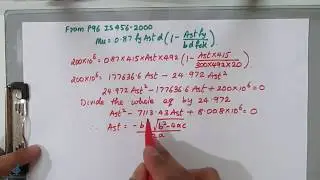 From P96 IS 456-2000
Mu = 0.87 fy Ast d (1 - Ast fy / bd fck)
200×10⁶ = 0.87×415×Ast×492 (1 - Ast×415 / 300×492×20)
200×10⁶ = 177636.6 Ast - 24.972 Ast²
24.972 Ast² - 177636.6 Ast + 200×10⁶ = 0
Divide the whole eq by 24.972
Ast² - 7113.43 Ast + 8.008×10⁶ = 0
∴ Ast = -b √b²-4ac / 2a